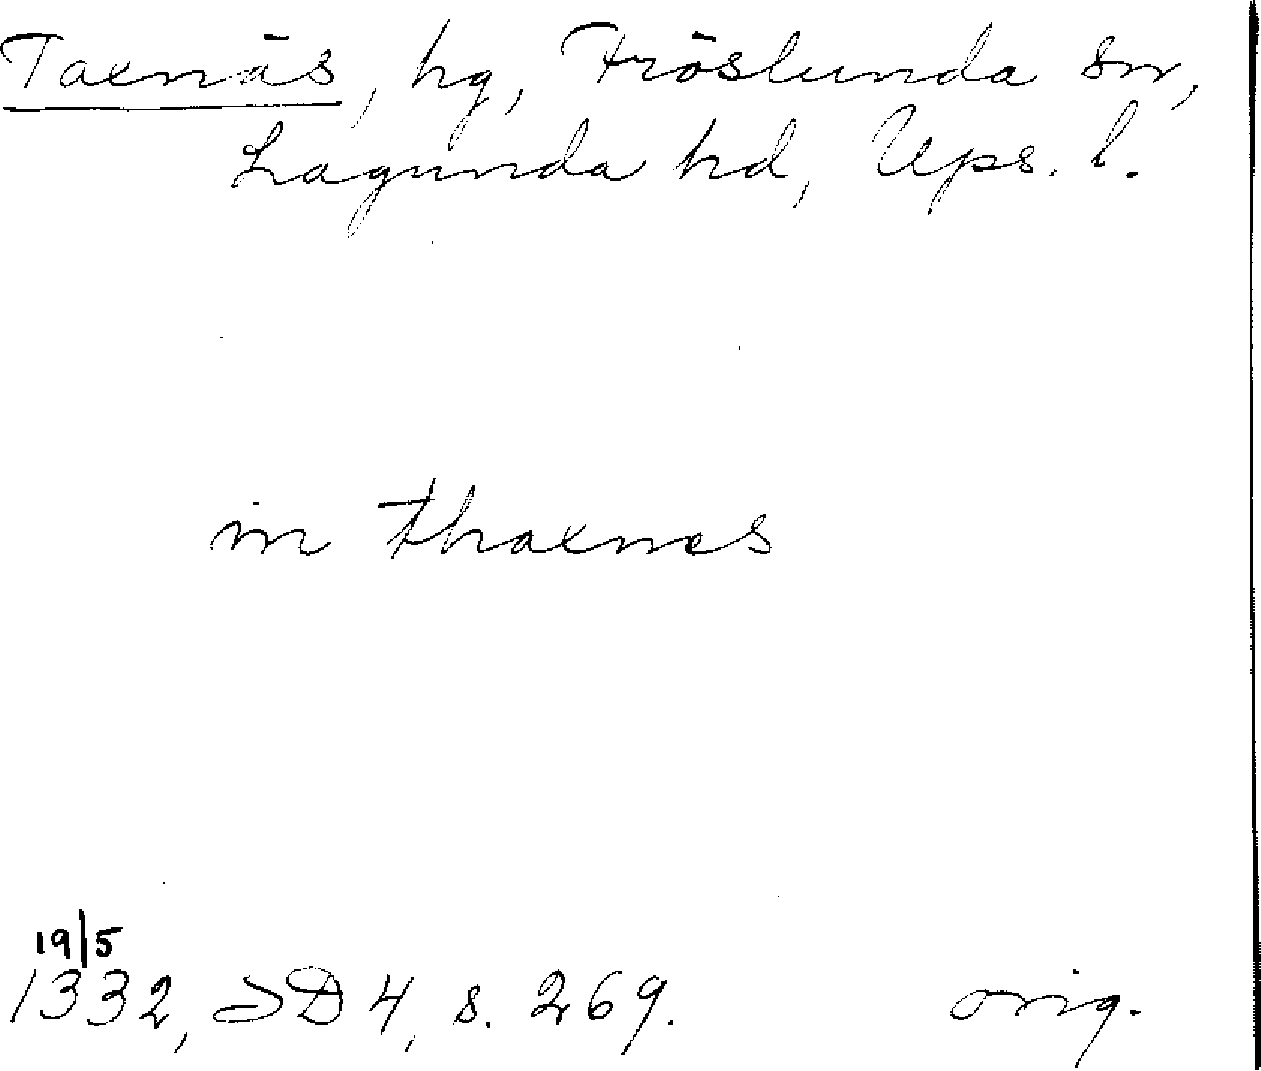 Taxnäs, hg, Fröslunda sn,
Lagunda hd, Ups. l.
in thaxnes
19/5
1332, SD 4, s. 269. orig.